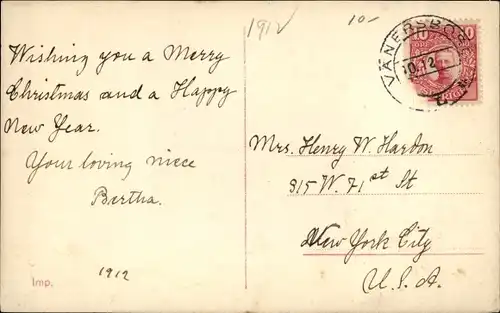 1912
10-
VÄNERSBORG
10.12
10 10
Wishing you a Merry
Christmas and a Happy
New Year.
Your loving niece
Bertha.
1912
Imp.
Mrs. Henry W. Hardon
315 W. 71st St
New York City
U.S.A.